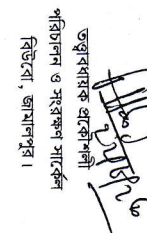 তত্ত্বাবধায়ক প্রকৌশলী
পরিচালন ও সংরক্ষণ সার্কেল
বিউবো, জামালপুর।